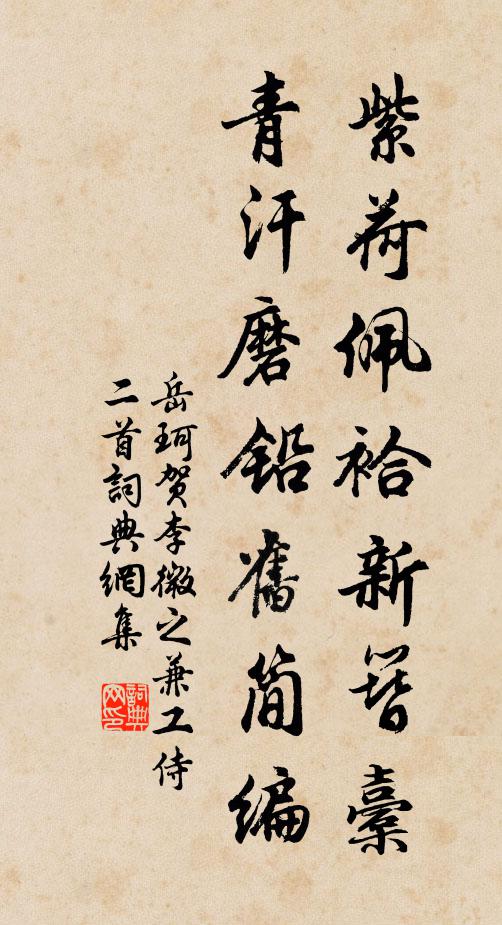 紫荷佩袷新簪橐
青汗磨鉛舊簡編
岳珂賀李微之兼工侍
二首詞典網集
詞典网印